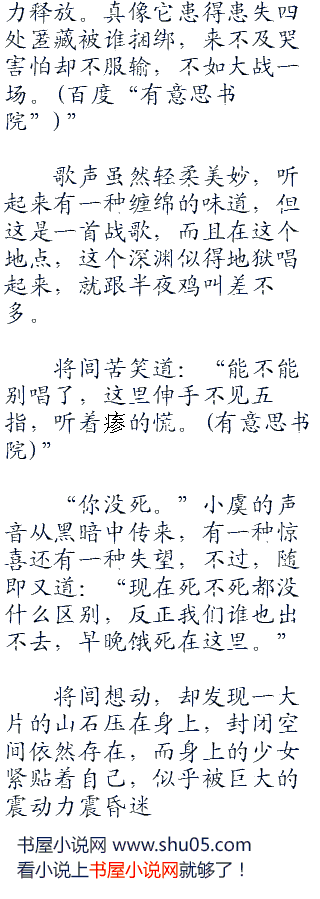 力释放。真像它患得患失四
处匿藏被谁捆绑，来不及哭
害怕却不服输，不如大战一
场。(百度“有意思书
院”)”
歌声虽然轻柔美妙，听
起来有一种缠绵的味道，但
这是一首战歌，而且在这个
地点，这个深渊似得地狱唱
起来，就跟半夜鸡叫差不
多。
将闾苦笑道：“能不能
别唱了，这里伸手不见五
指，听着瘆的慌。(有意思书
院)”
“你没死。”小虞的声
音从黑暗中传来，有一种惊
喜还有一种失望，不过，随
即又道：“现在死不死都没
什么区别，反正我们谁也出
不去，早晚饿死在这里。”
将闾想动，却发现一大
片的山石压在身上，封闭空
间依然存在，而身上的少女
紧贴着自己，似乎被巨大的
震动力震昏迷
书屋小说网 www.shu05.com
看小说上书屋小说网就够了！